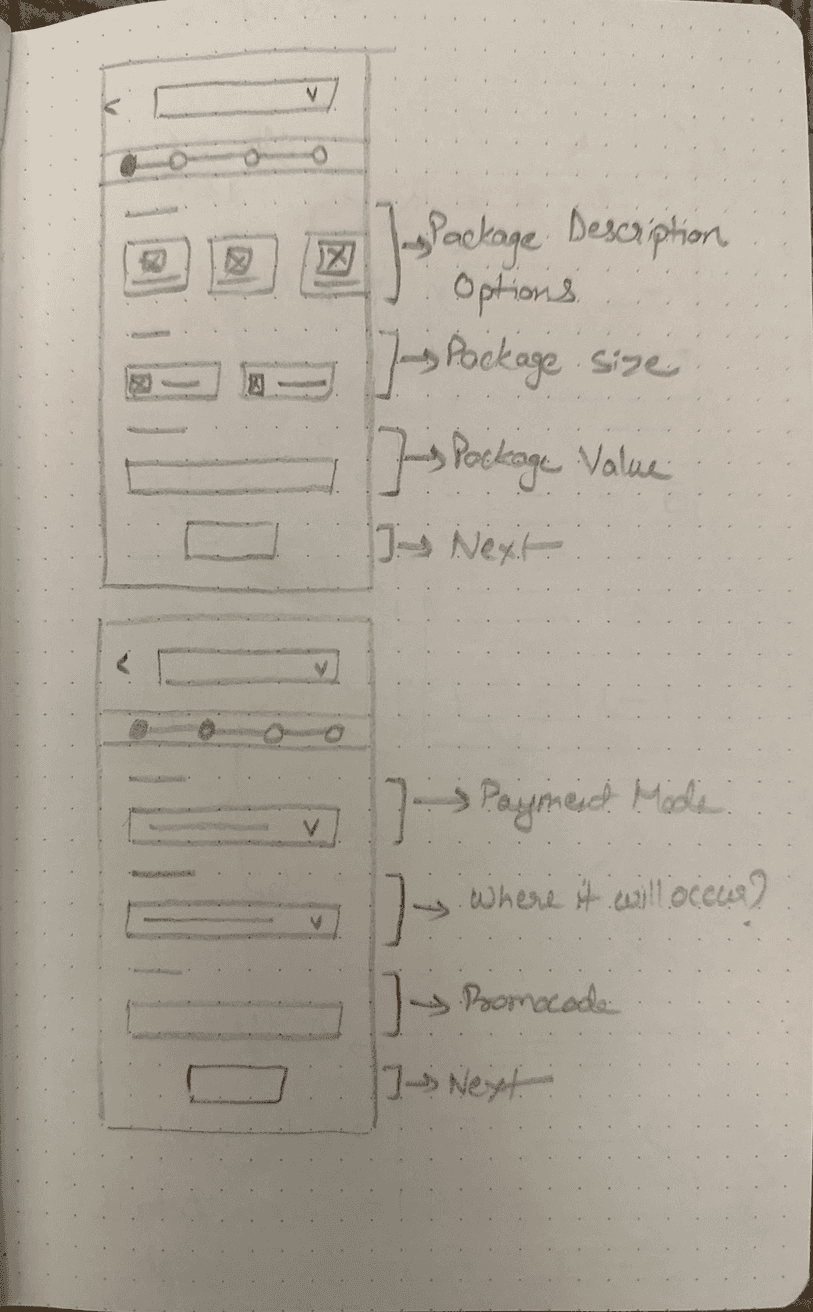 Package Description
Options
Package size
Package Value
Next
Payment Mode
Where it will occur?
Promocode
Next